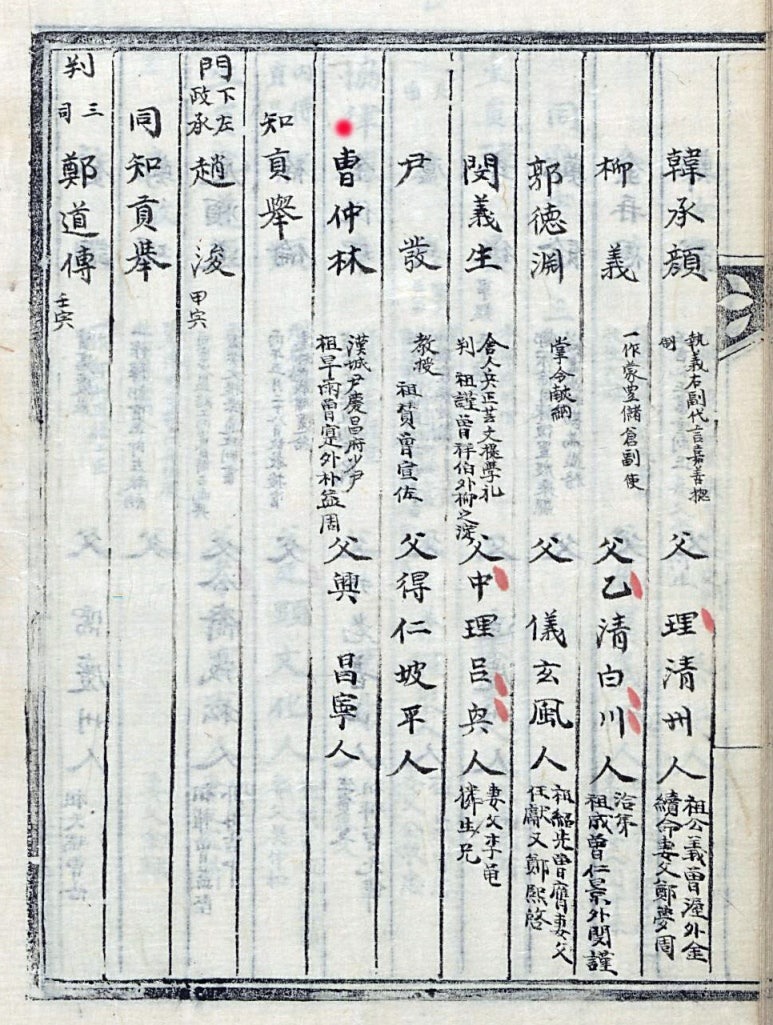 韓承顔 執義右副代言嘉善摠制 父 理清州人 祖公義曾渥外金續命妻父鄭夢周
柳 義 一作蒙豊儲倉副使 父乙清白川人 治第 祖成曾仁景外閔謹
郭德淵 掌令献納 父 儀玄風人 祖紹先曾膺妻父任獻又鄭熙啓
閔義生 舍人兵正芸文提學礼判 祖謹曾祥伯外柳之淀 父中理呂興人 妻父李黽 徘生兄
尹 發 教授 祖賛曾宣佐 父得仁坡平人
曹仲林 漢城尹慶昌府少尹 祖早雨曾寔外朴益周 父興 昌寧人
知貢舉
門下左政承 趙 浚 甲寅
同知貢舉
判三司 鄭道傳 壬寅